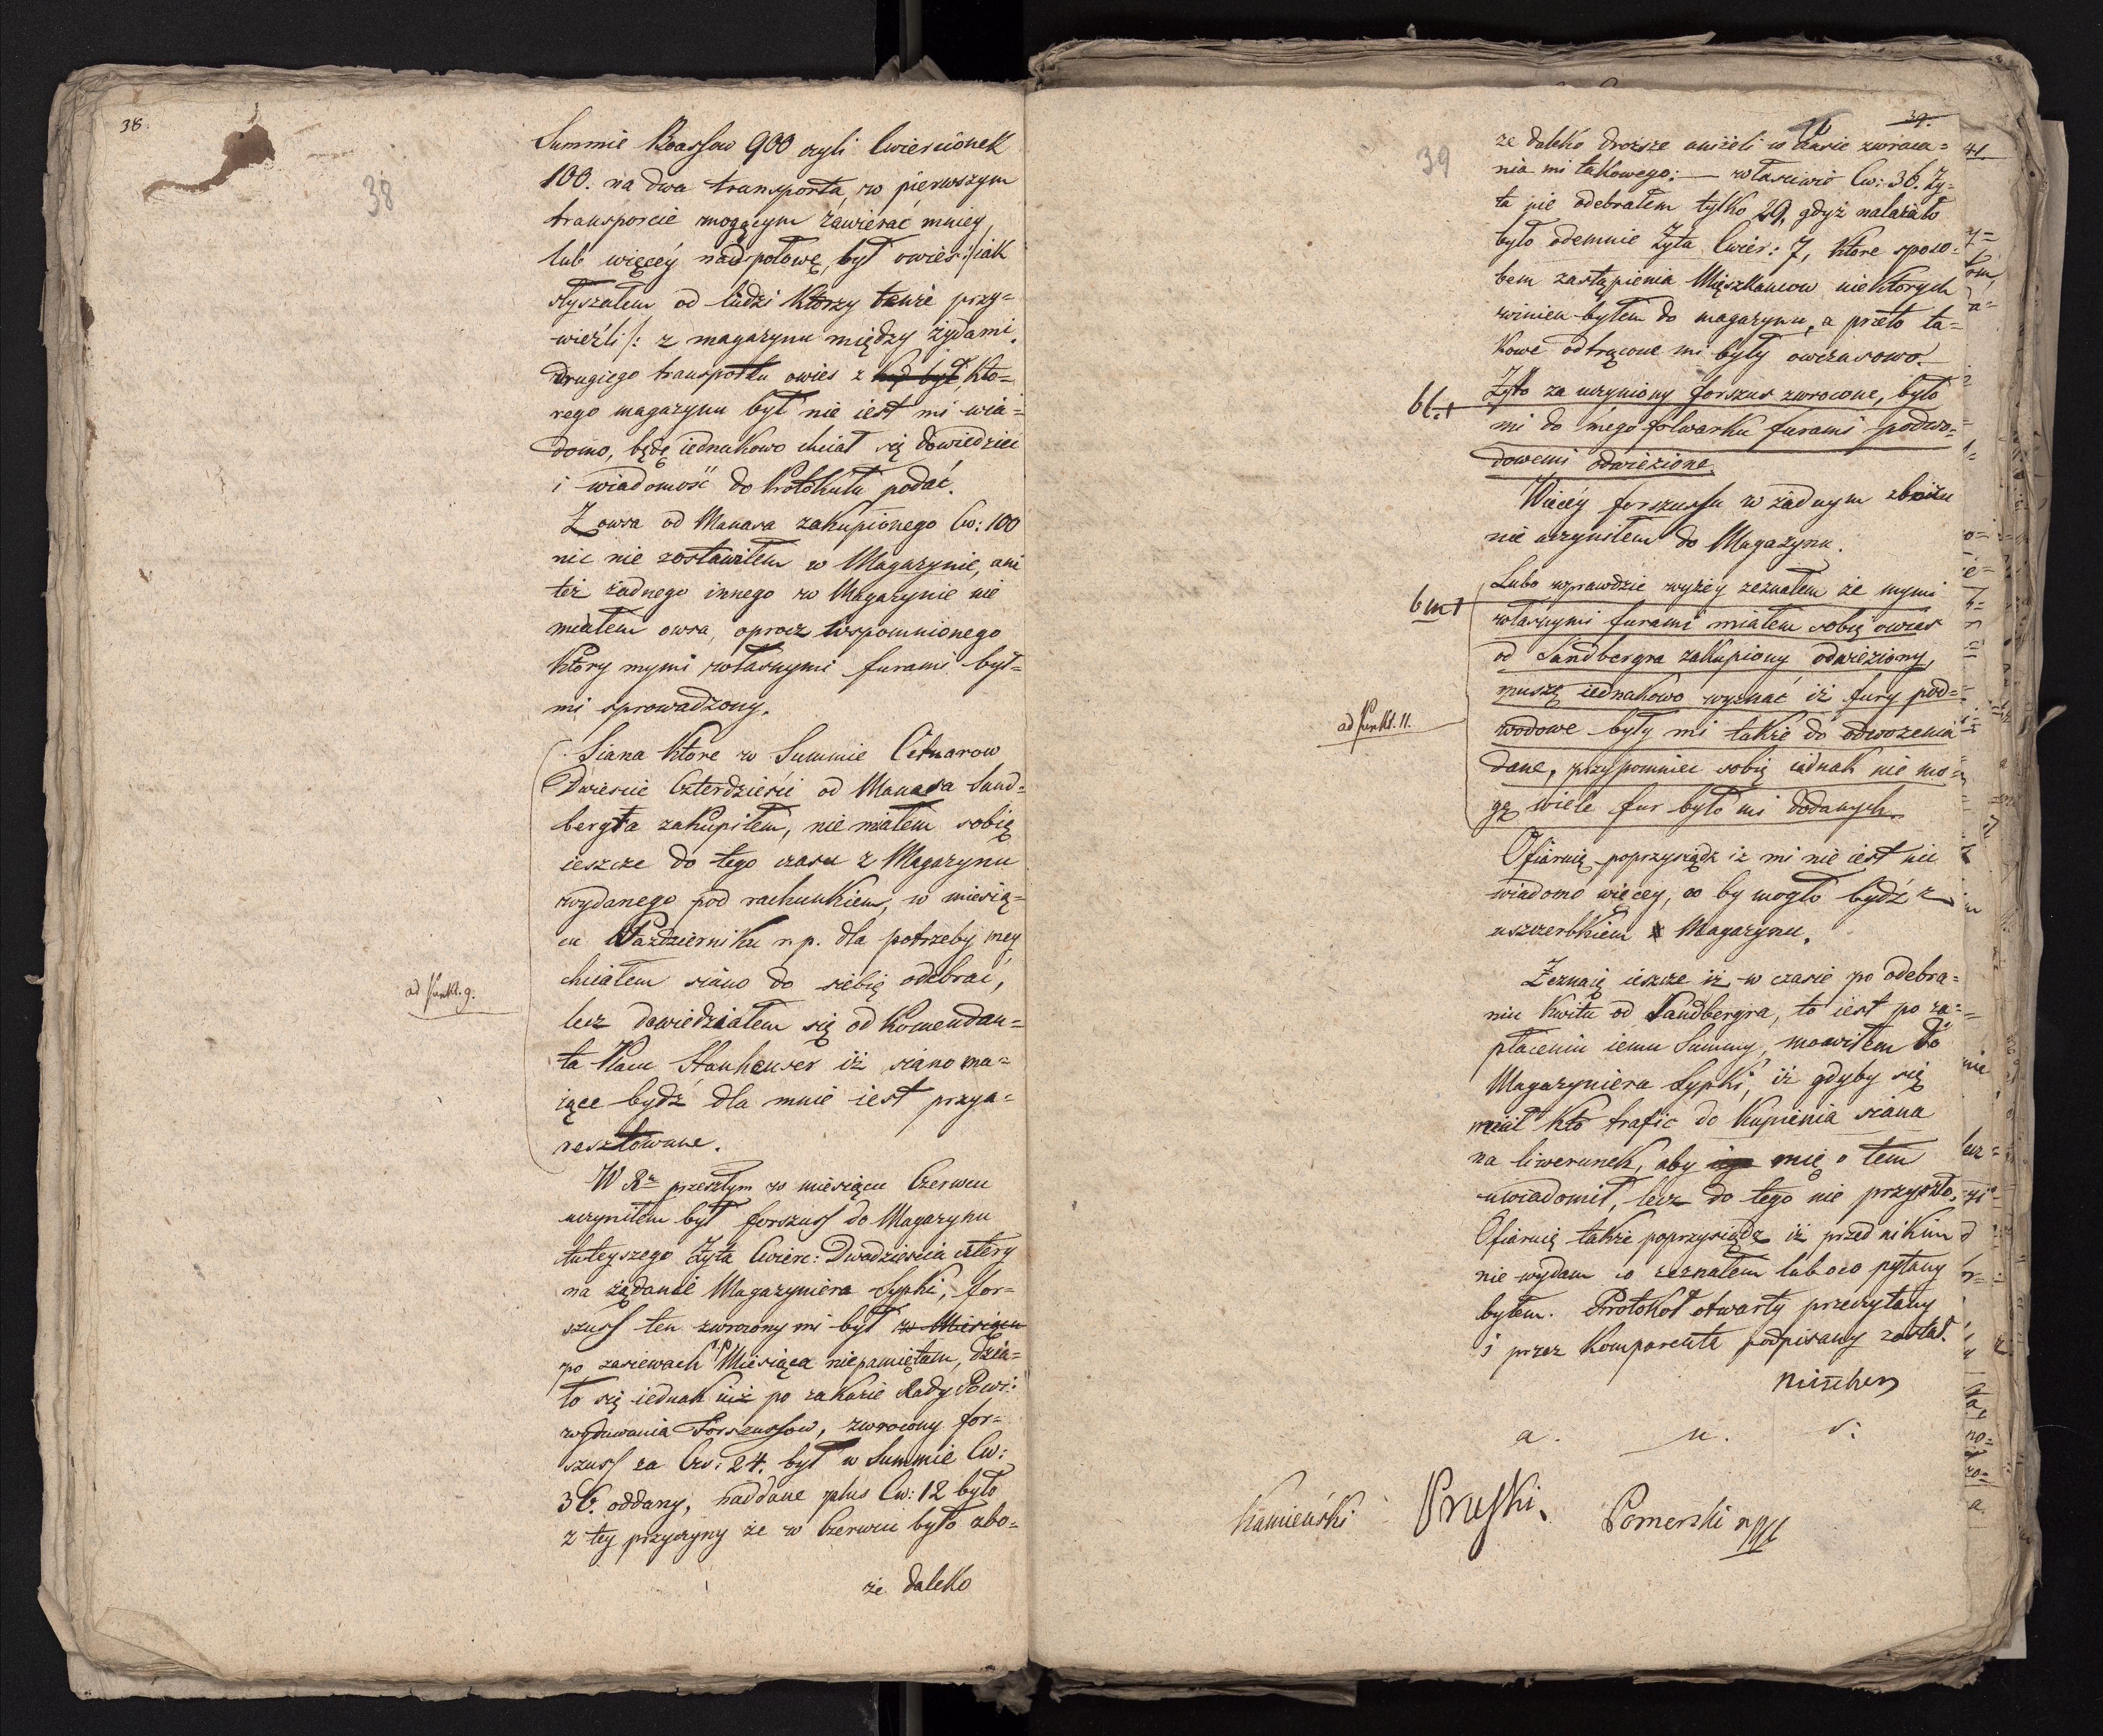 38.
38
Summie Krassow 900 czyli Cwierciónek
100. na dwa transporta, w pierwszym
transporcie mogącym zawierać mniey
lub więcéy nad połowę, był owies :/iak
słyszałem od ludzi którzy także przy=
wieźli/: z magazynu między żydami.
drugiego transportu owies z kąd był, kto=
rego magazynu był nie iest mi wia=
domo, będę iednakowo chciał się dowiedziec
i wiadomość do Protokułu podać.
Z owsa od Manasa zakupionego Cw: 100
nic nie zostawiłem w Magazynie, ani
też żadnego innego w Magazynie nie
miałem owsa, oprocz wspomnionego
który mymi własnymi furami był=
mi sprowadzony.
Siana które w Summie Cetnarow
Dwiescie Czterdzieści od Manassa Sand=
bergra zakupiłem, nie miałem sobię
ieszcze do tego czasu z Magazynu
wydanego pod rachunkiem, w miesią=
cu Październiku r. p. dla potrzeby mey
chciałem siano do siebię odebrać,
ad Punkt. 9.
lecz dowiedziałem się od Komendan=
ta Placu Stanheuser iż siano ma=
iące bydź dla mnie iest przya=
resztowane.
W Ru przeszłym w miesiącu Czerwcu
uczyniłem był forszuss do Magazynu
tuteyszego Zyta Cwierc: Dwadzieścia cztery
na żądanie Magazyniera Sypki, for=
szuss ten zwrocony mi był w Miesiącu
po zasiewach r.p. Miesiąca niepamiętam, dzia=
ło się iednak iuż po zakazie Rady Powi:
wydawania Forszussow, zwrocony for=
szuss za Cw: 24. był w Summie Cw:
36. oddany, naddane plus Cw: 12 było
z tey przyczyny że w Czerwcu było zbo=
że daleko
39.
39
że daleko droższe aniżeli w czasie zwraca=
nia mi takowego: — właściwie Cw: 36. Zy=
ta nie odebrałem tylko 29, gdyż nalażało
było odemnie Zyta Cwier: 7, które sposo=
bem zastąpienia Mięszkancow niektórych
winien byłem do magazynu, a przeto ta=
kowe odtrącone mi były owczasowo.
Zyto za uczyniony forszus zwrocone, było
6l.+
mi do mego folwarku furami podwo=
dowemi odwiezione.
Więcéy forszussu w żadnym zbożu
nie uczyniłem do Magazynu.
Lubo wprawdzie wyżéy zeznałem że mymi
6m+
własnymi furami miałem sobię owies
od Sandbergra zakupiony odwieziony,
muszę iednakowo wyznać iż fury pod=
ad Punkt. 11.
wodowe były mi także do odwożenia
dane, przypomniec sobię iednak nie mo=
gę wiele fur było mi dodanych.
Ofiaruię poprzysiądz iż mi nie iest nic
wiadomo więcey, co by mogło bydź z
uszczerbkiem Magazynu.
Zeznaię ieszcze iż w czasie po odebra=
niu Kwitu od Sandbergra, to iest po za=
płaceniu iemu Summy, mowiłem do
Magazyniera Sypki, iż gdyby się
miał kto trafic do kupienia siana
na liwerunek, aby mię o tem
uwiadomił, lecz do tego nie przyszło.
Ofiaruię także poprzysiądz iż przed nikim
nie wydam co zeznałem lub oco pytany
byłem. Protokoł otwarty przeczytany
i przez Komparenta podpisany został.
a. u. s:
Kamieński Pruski. Pomerski
41.